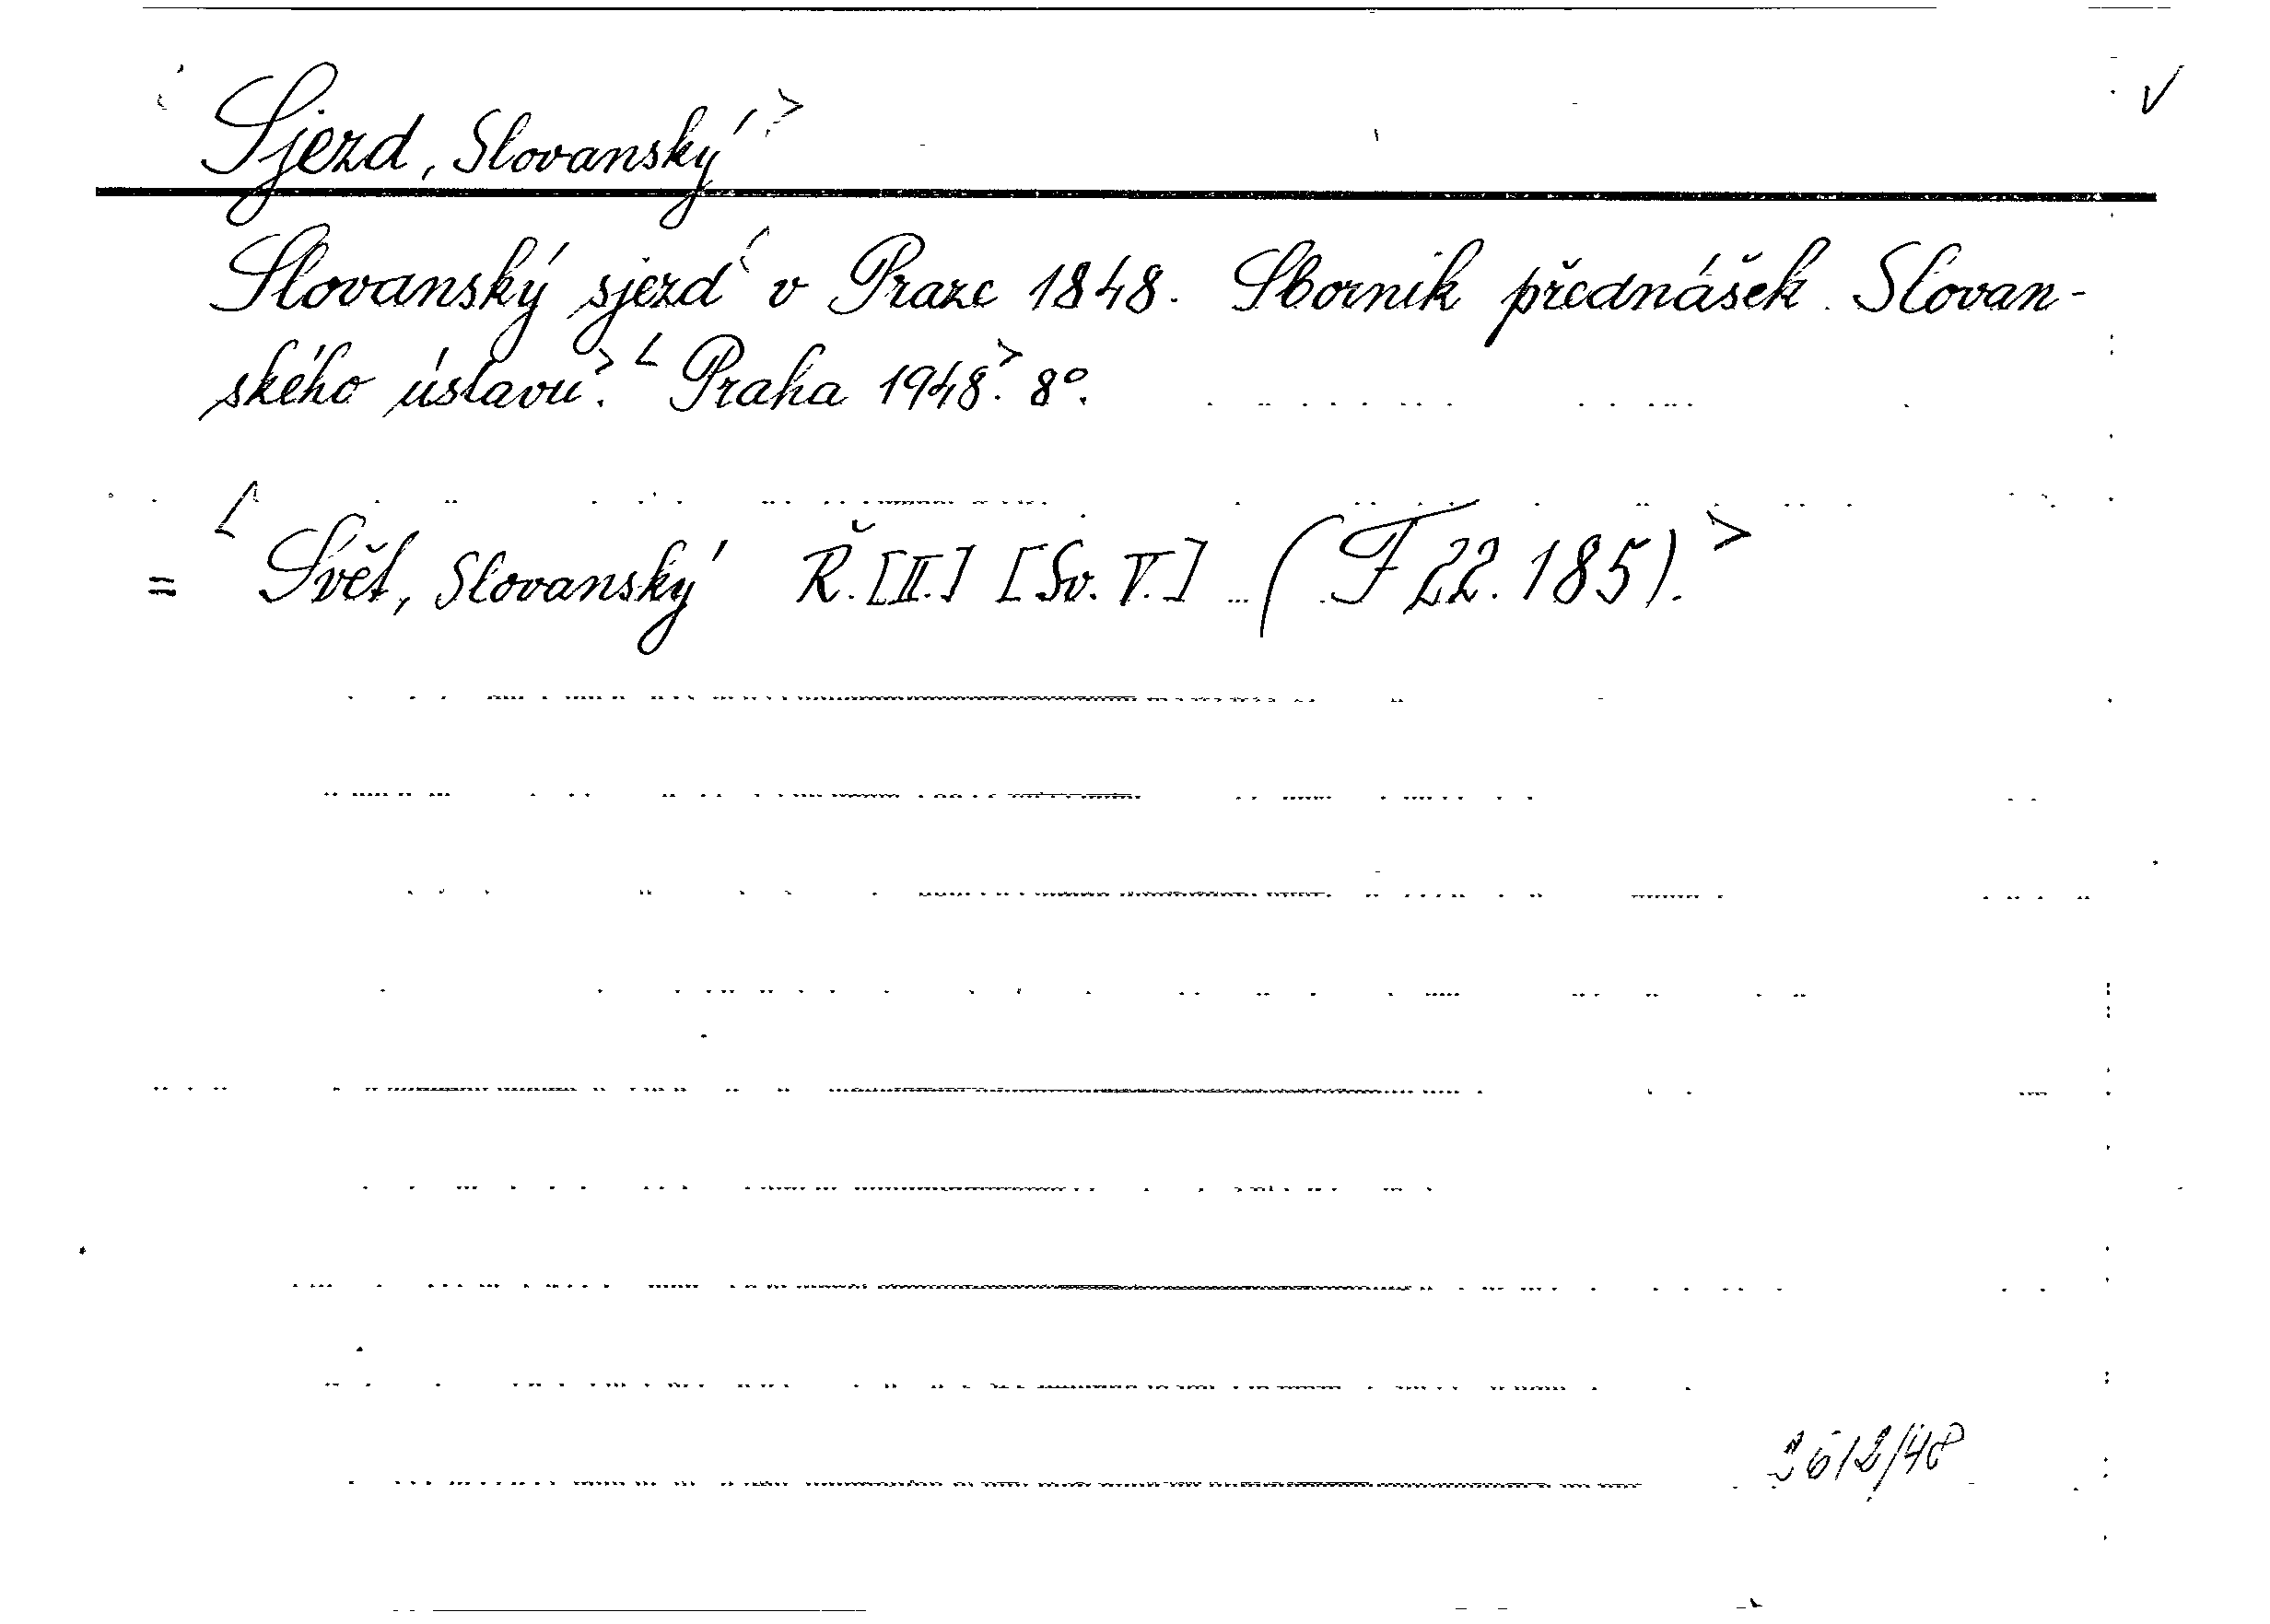 Sjezd, Slovanský>
Slovanský sjezd v Praze 1848. Sborník přednášek Slovan-
ského ústavu.> <Praha 1948.> 8°.
= <Svět, Slovanský Ř. [II.] [Sv. V.] (F 22.185).>
2612/48